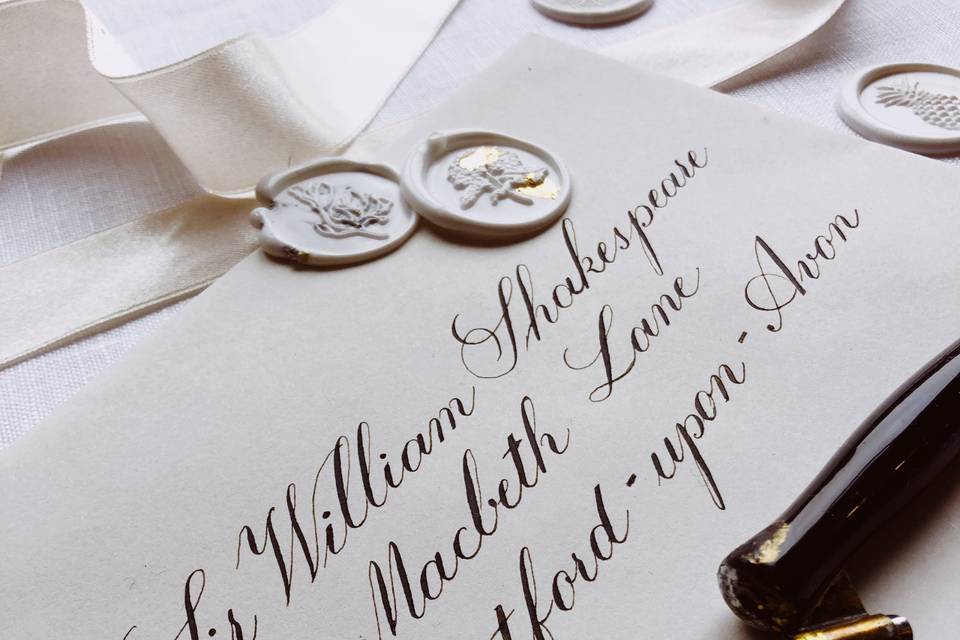 Sir William Shakespeare
Macbeth Lane
tford-upon-Avon